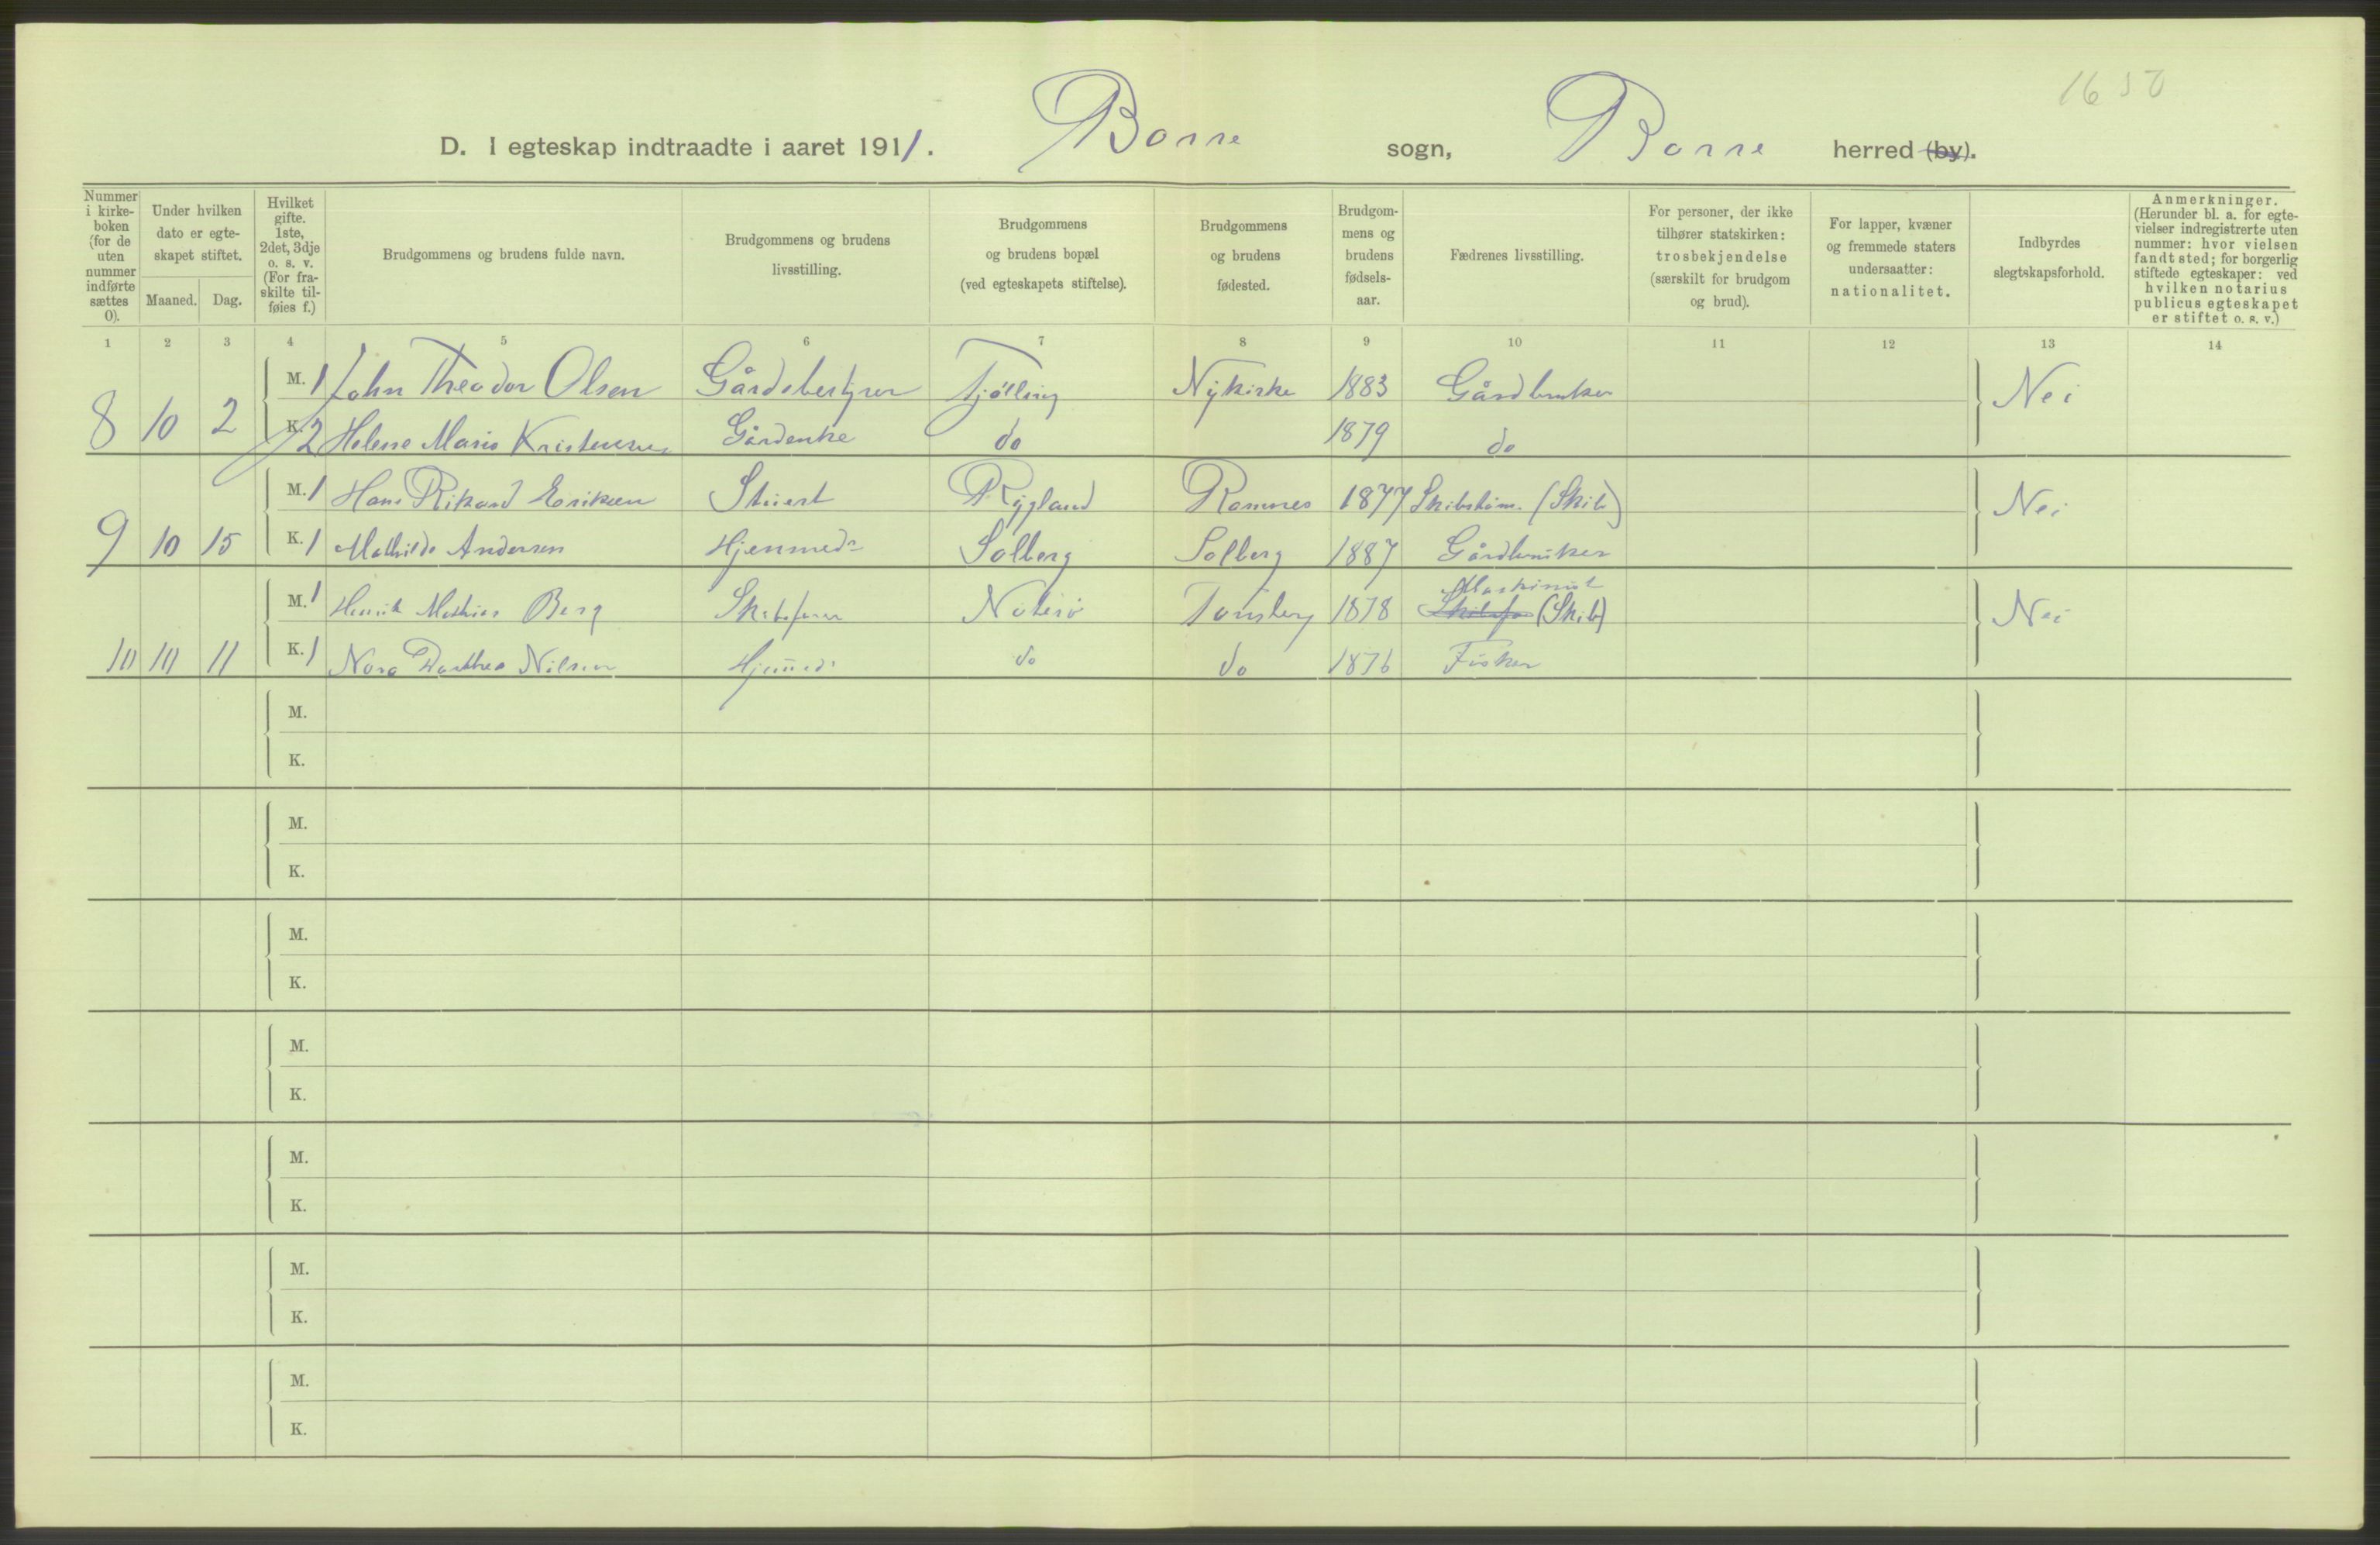 1650
D. I egteskap indtraadte i aaret 1911. Borre sogn, Borre herred (by).
Nummer i kirkeboken (for de uten nummer indførte sættes 0).
Under hvilken dato er egteskapet stiftet.
Maaned. Dag.
Hvilket gifte. 1ste, 2det, 3dje o. s. v. (For fraskilte tilføies f.)
Brudgommens og brudens fulde navn.
Brudgommens og brudens livsstilling.
Brudgommens og brudens bopæl (ved egteskapets stiftelse).
Brudgommens og brudens fødested.
Brudgommens og brudens fødselsaar.
Fædrenes livsstilling.
For personer, der ikke tilhører statskirken: trosbekjendelse (særskilt for brudgom og brud).
For lapper, kvæner og fremmede staters undersaatter: nationalitet.
Indbyrdes slegtskapsforhold.
Anmerkninger. (Herunder bl. a. for egtevielser indregistrerte uten nummer: hvor vielsen fandt sted; for borgerlig stiftede egteskaper: ved hvilken notarius publicus egteskapet er stiftet o. s. v.)
1 2 3 4 5 6 7 8 9 10 11 12 13 14
M. 1 John Theodor Olsen Gårdsbestyrer Tjølling Nykirke 1883 Gårdbruker Nei
8 10 2 K. 2 Helene Marie Kristensen Gårdenke do 1879 do
M. 1 Hans Rikard Eriksen Stuert Rygland Ramnes 1877 Skibstøm. (Skib) Nei
9 10 15 K. 1 Mathilde Andersen Hjemmeds Solberg Solberg 1887 Gårdbruker
M. 1 Henrik Mathias Berg Skibsfører Nøterø Tønsberg 1878 Maskinist (Skib) Nei
10 10 11 K. 1 Nora Dorthea Nilsen Hjemmeds do do 1876 Fisker
M.
K.
M.
K.
M.
K.
M.
K.
M.
K.
M.
K.
M.
K.